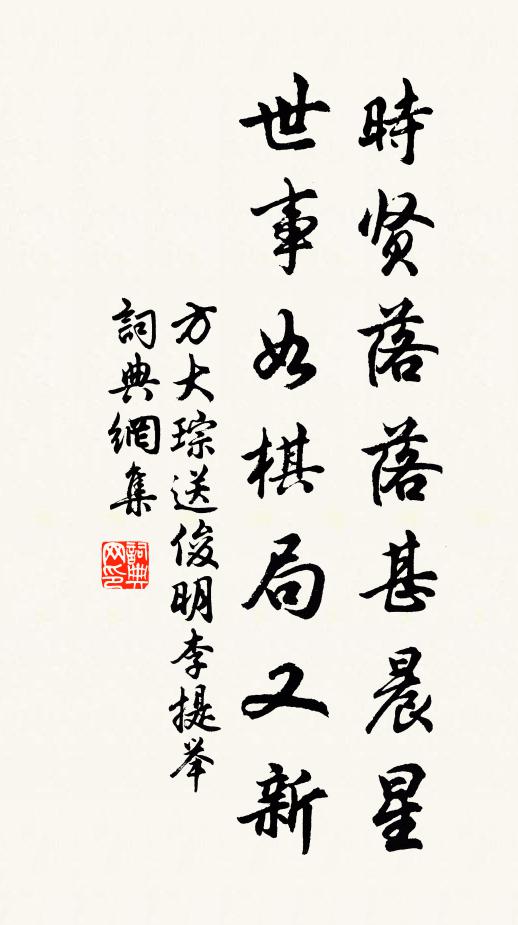 時贤落落甚晨星
世事如棋局又新
方大琮送俊明李提举
詞典網集
詞典网印